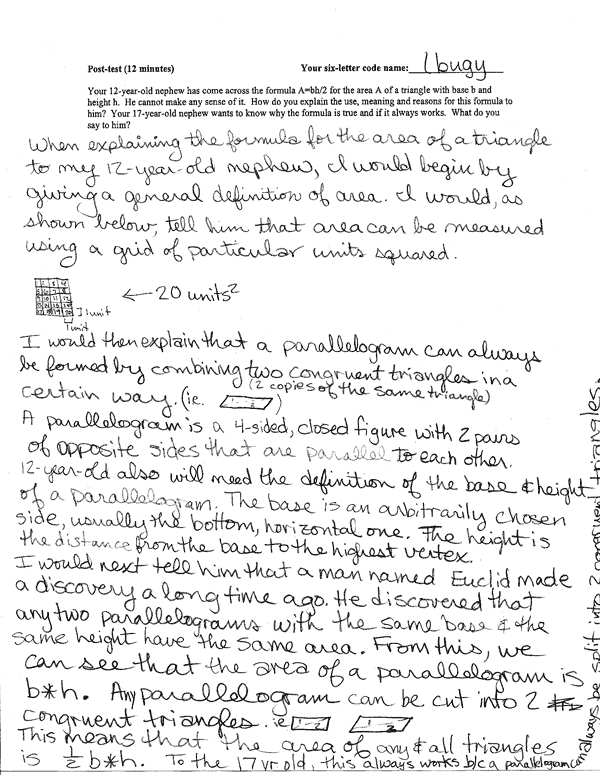 Post-test (12 minutes) Your six-letter code name: lbugy
Your 12-year-old nephew has come across the formula A=bh/2 for the area A of a triangle with base b and
height h. He cannot make any sense of it. How do you explain the use, meaning and reasons for this formula to
him? Your 17-year-old nephew wants to know why the formula is true and if it always works. What do you
say to him?
When explaining the formula for the area of a triangle
to my 12-year-old nephew, I would begin by
giving a general definition of area. I would, as
shown below, tell him that area can be measured
using a grid of particular units squared.
← 20 units²
1 unit
1 unit
I would then explain that a parallelogram can always
be formed by combining two congruent triangles in a
(2 copies of the same triangle)
certain way. (ie. )
A parallelogram is a 4-sided, closed figure with 2 pairs
of opposite sides that are parallel to each other.
12-year-old also will need the definition of the base & height
of a parallelogram. The base is an arbitrarily chosen
side, usually the bottom, horizontal one. The height is
the distance from the base to the highest vertex.
I would next tell him that a man named Euclid made
a discovery a long time ago. He discovered that
any two parallelograms with the same base & the
same height have the same area. From this, we
can see that the area of a parallelogram is
b*h. Any parallelogram can be cut into 2
congruent triangles. ie
This means that the area of any & all triangles
is ½ b*h. To the 17 yr old, this always works b/c a parallelogram can
always be split into 2 congruent triangles.